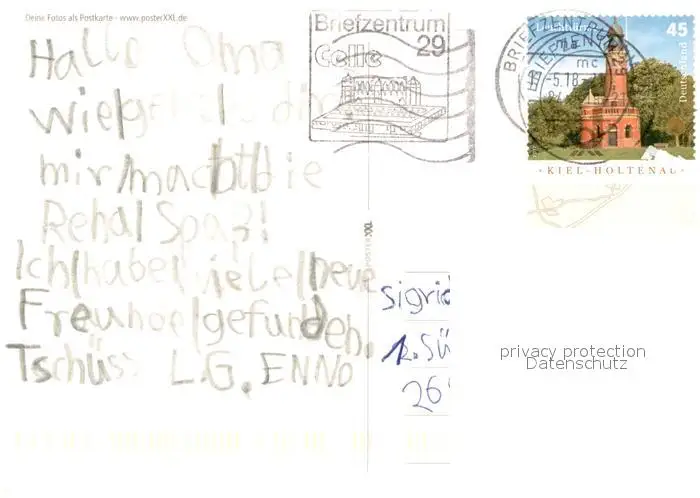 Deine Fotos als Postkarte - www.posterXXL.de
Hallo Oma
wie geht es dir
mir macht die
Reha Spaß!
Ich habe viele neue
Freunde gefunden.
Tschüss L.G. ENNO
Briefzentrum
29
Celle
BRIEFZENTRUM
mc
-5.18
45
Deutschland
KIEL-HOLTENAU
POSTERXXL
Sigrid
2. SÜ
26
privacy protection
Datenschutz